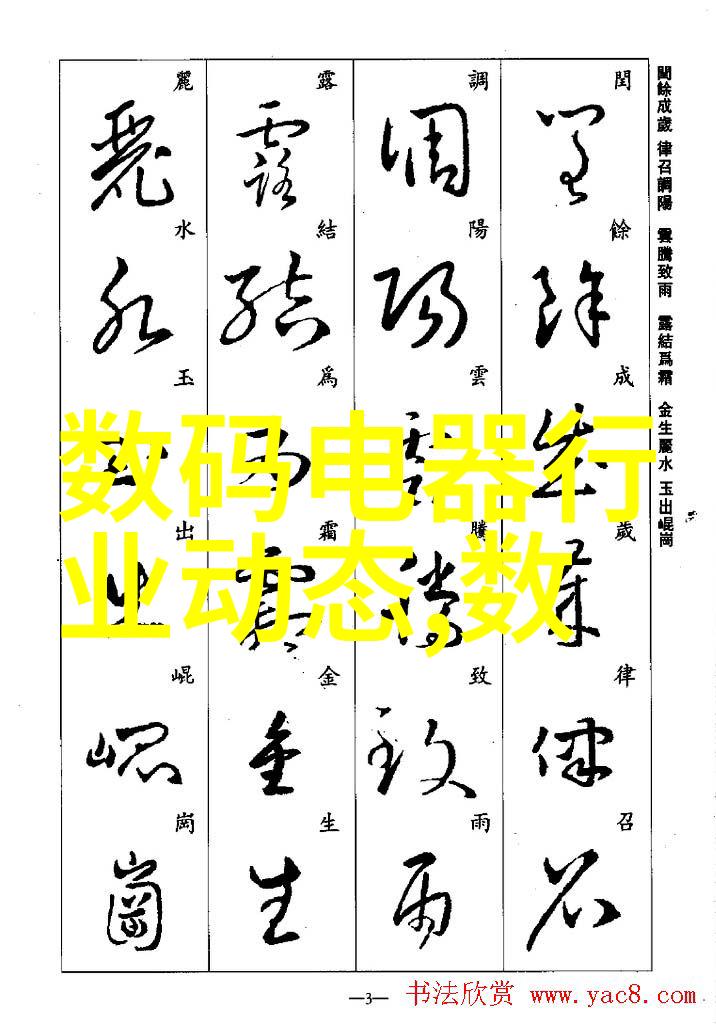 閏餘成歲 律召調陽 雲騰致雨 露結爲霜 金生麗水 玉出崐崗
閏餘成歲律召
調陽雲騰致雨
露結爲霜金生
麗水玉出崐崗
数码电器行
业动态,数
—3—
书法欣赏 www.yac8.com